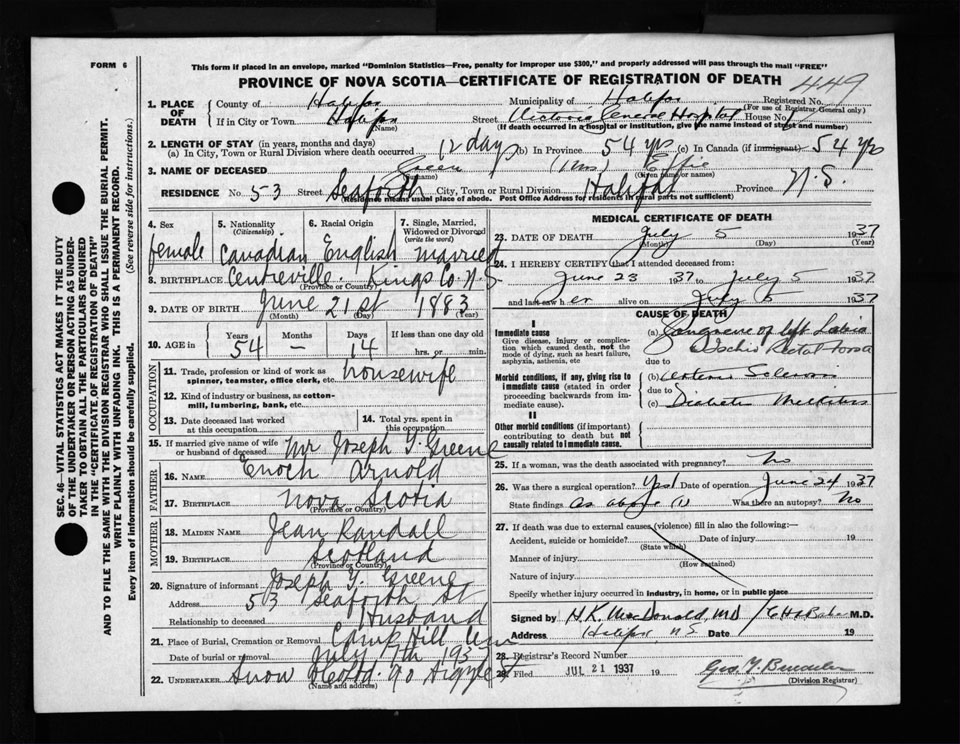 FORM 6
This form if placed in an envelope, marked "Dominion Statistics—Free, penalty for improper use $300," and properly addressed will pass through the mail "FREE"
PROVINCE OF NOVA SCOTIA—CERTIFICATE OF REGISTRATION OF DEATH
449
1. PLACE OF DEATH
County of Halifax Municipality of Halifax Registered No.
(For use of Registrar General only)
If in City or Town Halifax Street Victoria General Hospital House No.
(Name) (If death occurred in a hospital or institution, give name instead of street and number)
2. LENGTH OF STAY (in years, months and days)
(a) In City, Town or Rural Division where death occurred 12 days (b) In Province 54 yrs (c) In Canada (if immigrant) 54 yrs
3. NAME OF DECEASED (Mrs) Effie
(Given name or names)
RESIDENCE No. 53 Street Seaforth City, Town or Rural Division Halifax Province N.S.
(Residence means usual place of abode. Post Office Address for residents in rural parts not sufficient)
4. Sex 5. Nationality (Citizenship) 6. Racial Origin 7. Single, Married, Widowed or Divorced (write the word)
female Canadian English married
8. BIRTHPLACE Centreville Kings Co. N.S
(Province or Country)
9. DATE OF BIRTH June 21st 1883
(Month) (Day) (Year)
10. AGE in Years Months Days If less than one day old
54 — 14 hrs. or min.
OCCUPATION
11. Trade, profession or kind of work as spinner, teamster, office clerk, etc. housewife
12. Kind of industry or business, as cotton-mill, lumbering, bank, etc.
13. Date deceased last worked at this occupation
14. Total yrs. spent in this occupation
15. If married give name of wife or husband of deceased Mr Joseph Y. Greene
FATHER
16. NAME Enoch Arnold
17. BIRTHPLACE Nova Scotia
(Province or Country)
MOTHER
18. MAIDEN NAME Jean Randall
19. BIRTHPLACE Scotland
(Province or Country)
20. Signature of informant Joseph Y. Greene
Address 53 Seaforth St
Relationship to deceased Husband
21. Place of Burial, Cremation or Removal Camp Hill
Date of burial or removal July 7th 1937
22. UNDERTAKER Snow 90 Argyle
(Name and address)
MEDICAL CERTIFICATE OF DEATH
23. DATE OF DEATH July 5 1937
(Month) (Day) (Year)
24. I HEREBY CERTIFY that I attended deceased from:
June 23 1937 to July 5 1937
and last saw her alive on July 5 1937
CAUSE OF DEATH
I
Immediate cause
Give disease, injury or complication which caused death, not the mode of dying, such as heart failure, asphyxia, asthenia, etc
(a) Gangrene of left Labia
Ischio Rectal Fossa
due to
Morbid conditions, if any, giving rise to immediate cause (stated in order proceeding backwards from immediate cause).
(b) Arterio Sclerosis
due to
(c) Diabetes Mellitus
II
Other morbid conditions (if important) contributing to death but not causally related to immediate cause.
25. If a woman, was the death associated with pregnancy? No
26. Was there a surgical operation? Yes Date of operation June 24 1937
State findings as above Was there an autopsy? No
27. If death was due to external causes (violence) fill in also the following:—
Accident, suicide or homicide? Date of injury 19
(State which)
Manner of injury
(How sustained)
Nature of injury
Specify whether injury occurred in industry, in home, or in public place
Signed by H.K. MacDonald, MD M.D.
Address Halifax N S Date 19
28. Registrar's Record Number
29. Filed JUL 21 1937 19
(Division Registrar)
SEC. 46—VITAL STATISTICS ACT MAKES IT THE DUTY
OF THE UNDERTAKER OR PERSON ACTING AS UNDER-
TAKER TO OBTAIN ALL THE PARTICULARS REQUIRED
IN THE "CERTIFICATE OF REGISTRATION OF DEATH"
AND TO FILE THE SAME WITH THE DIVISION REGISTRAR WHO SHALL ISSUE THE BURIAL PERMIT.
WRITE PLAINLY WITH UNFADING INK. THIS IS A PERMANENT RECORD.
Every item of information should be carefully supplied. (See reverse side for instructions.)